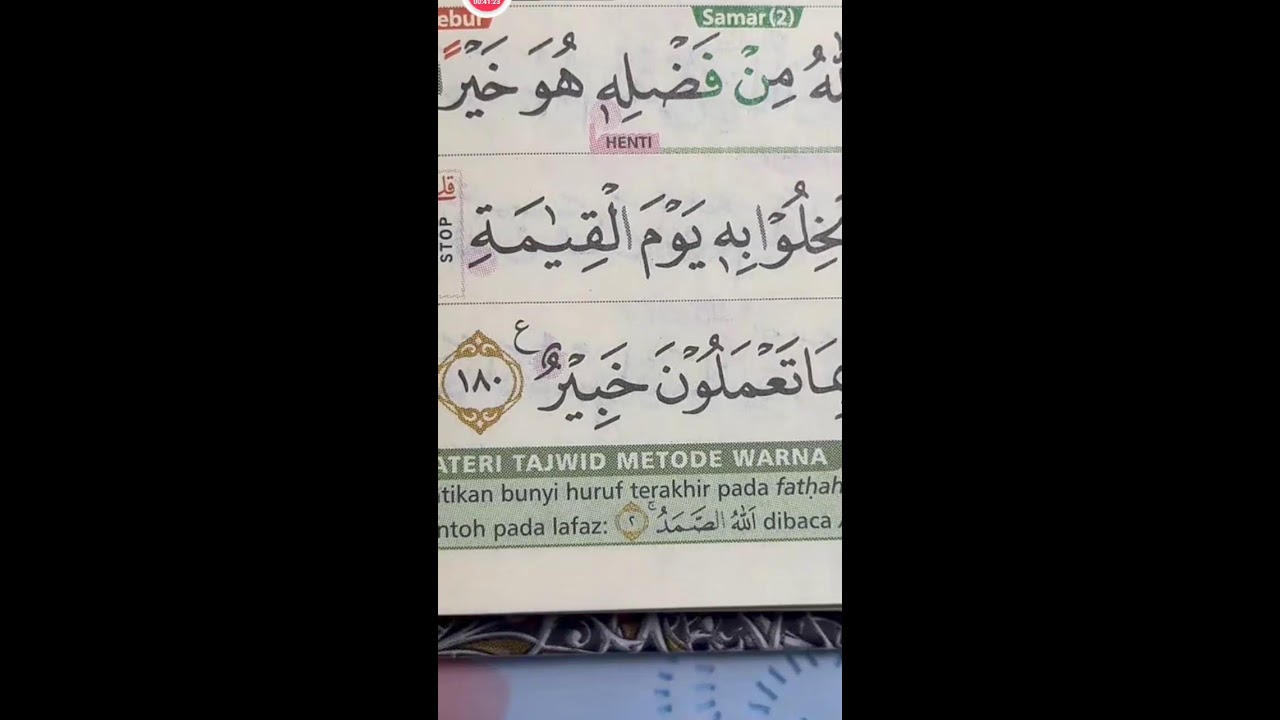 00:41:23
ebur Samar (2)
مِنْ فَضْلِهٖ هُوَ خَيْرًا
HENTI
بِهٖ يَوْمَ الْقِيٰمَةِ
STOP
تَعْمَلُوْنَ خَبِيْرٌ ࣖ ١٨٠
ATERI TAJWID METODE WARNA
tikan bunyi huruf terakhir pada fatḥah
ntoh pada lafaz: اَللّٰهُ الصَّمَدُۚ ٢ dibaca